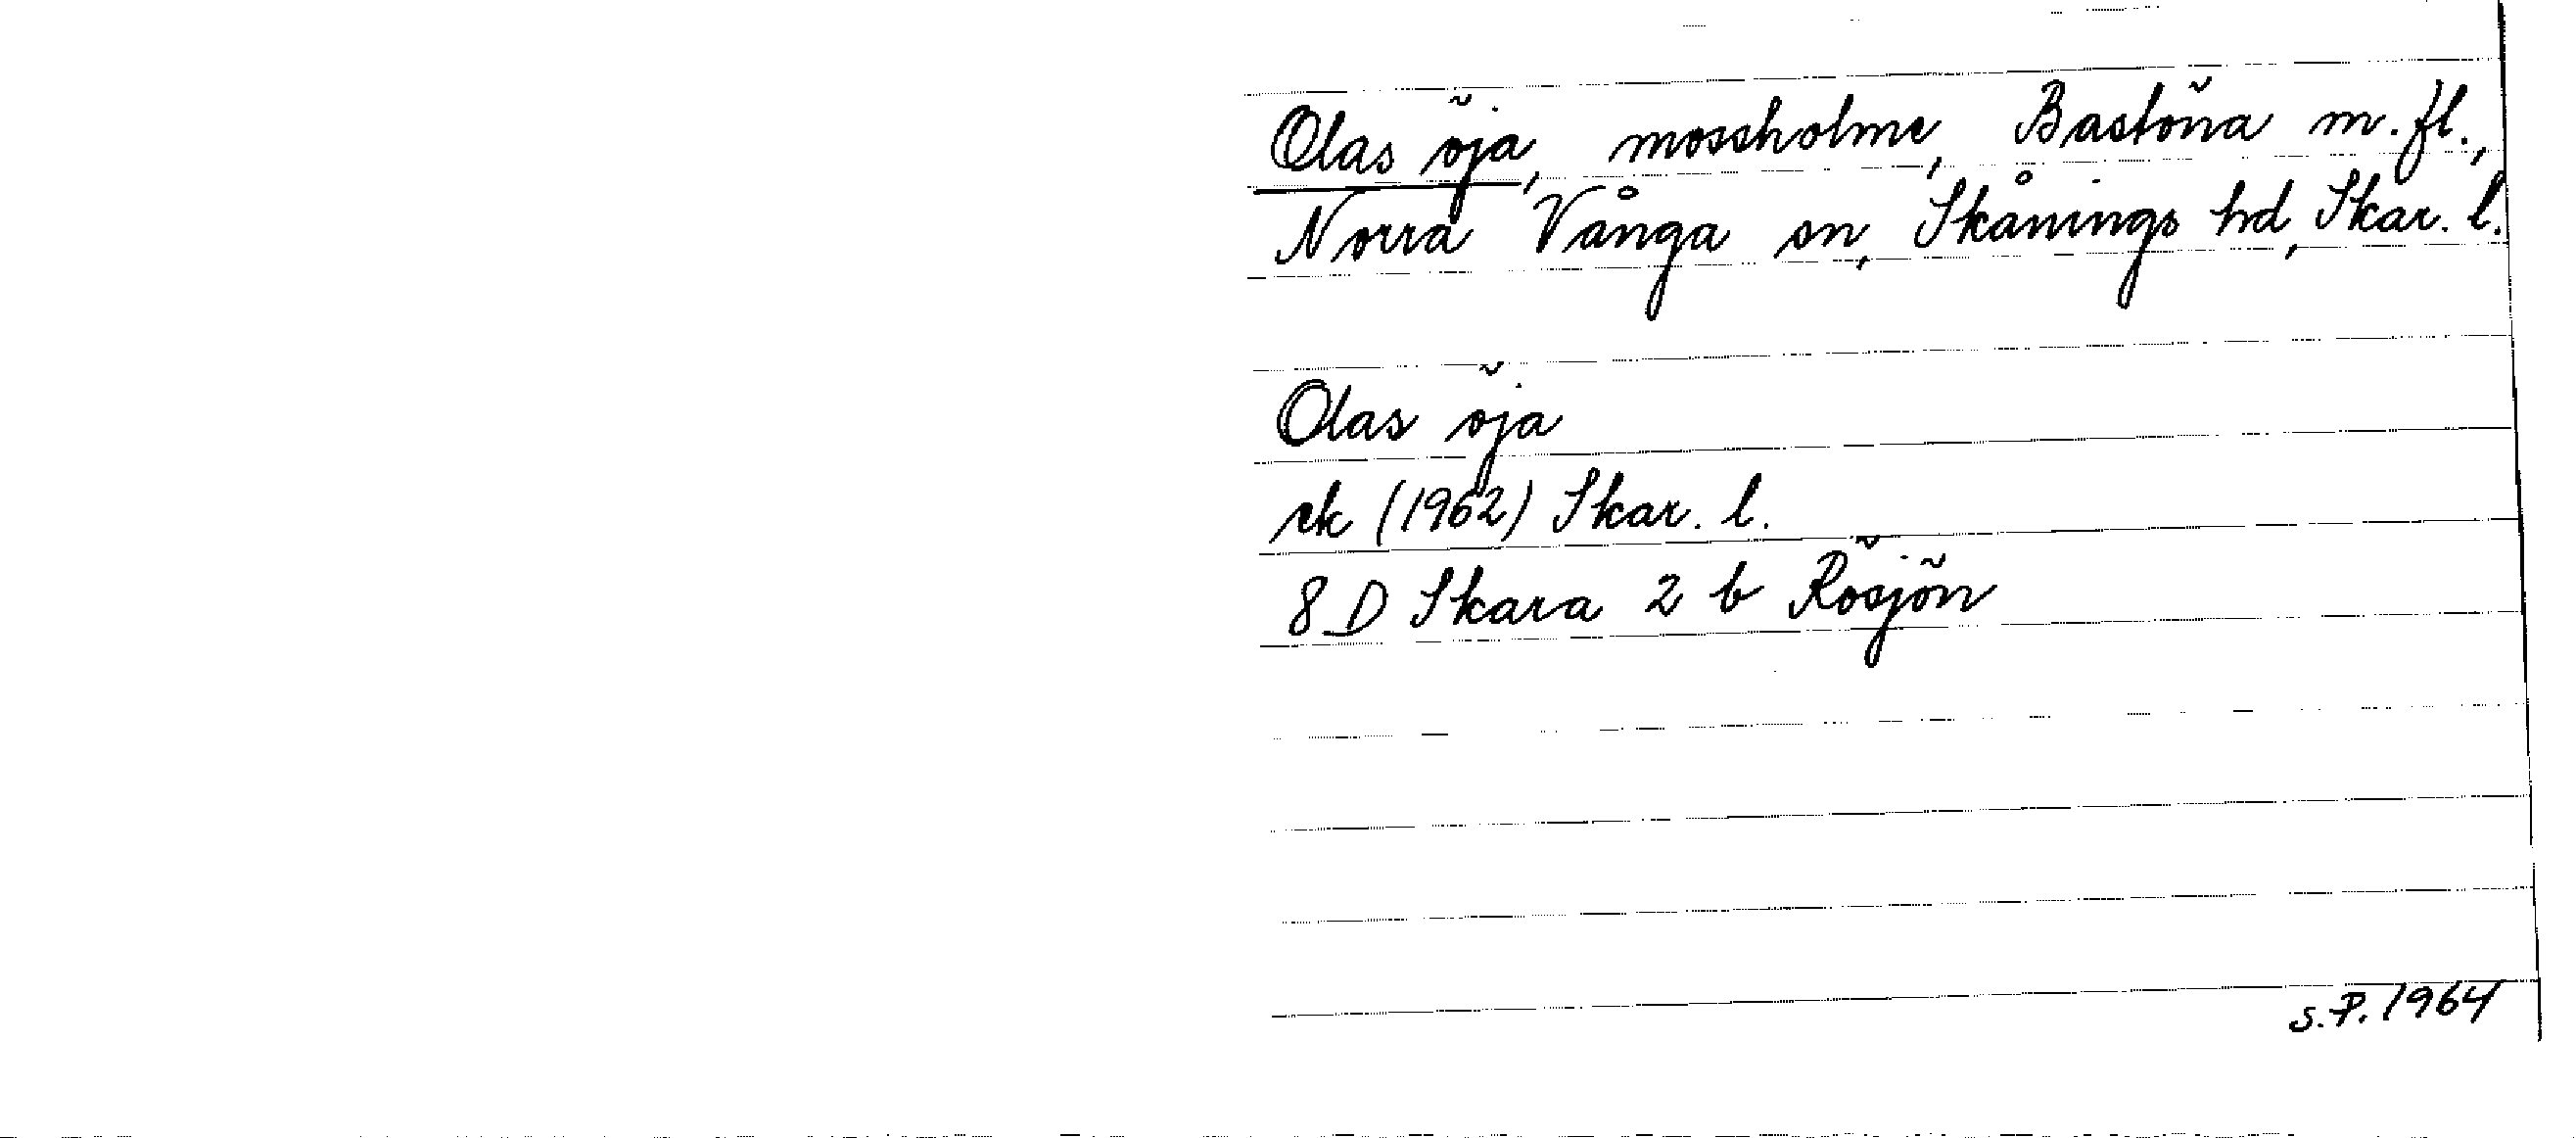 Olas öja, mossholme, Bastöna m.fl.,
Norra Vånga sn, Skånings hd, Skar. l.
Olas öja
ek (1962) Skar. l.
8 D Skara 2 b Rösjön
S.P. 1964